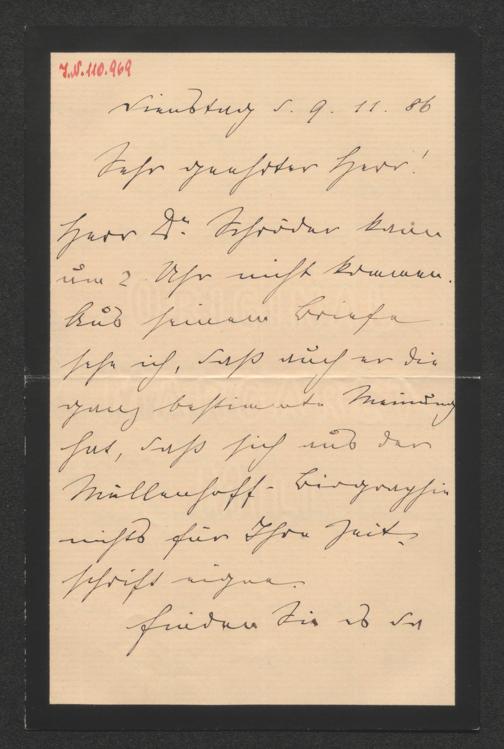 I.N. 110.969
Dienstag d. 9. 11. 86
Sehr geehrter Herr!
Herr Dr. Schröder kann
um 2 Uhr nicht kommen.
Aus seinem Briefe
sehe ich, daß auch er die
ganz bestimmte Meinung
hat, daß sich aus der
Müllenhoff-Biographie
nichts für Ihre Zeit-
schrift eigne.
Finden Sie es da